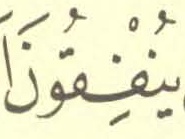 يُنْفِقُونَ